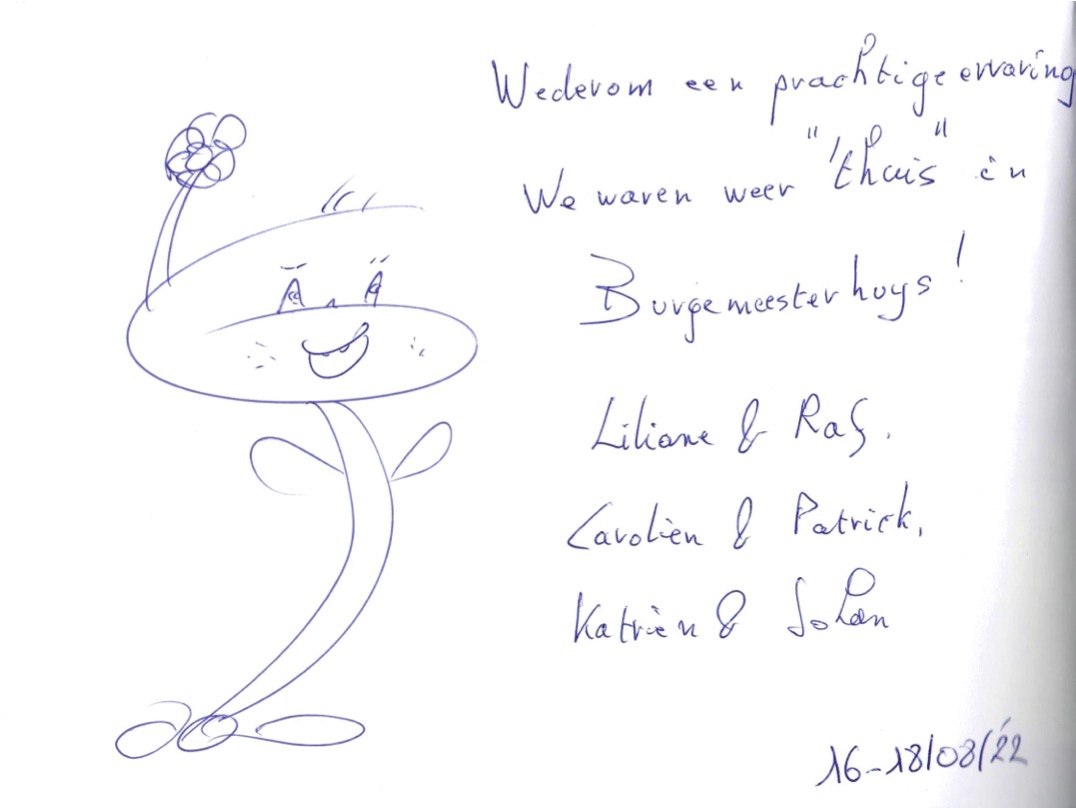 Wederom een prachtige ervaring
We waren weer "'thuis" in
Burgemeesterhuys!
Liliane & Raf.
Carolien & Patrick,
Katrien & Johan
16-18/08/'22